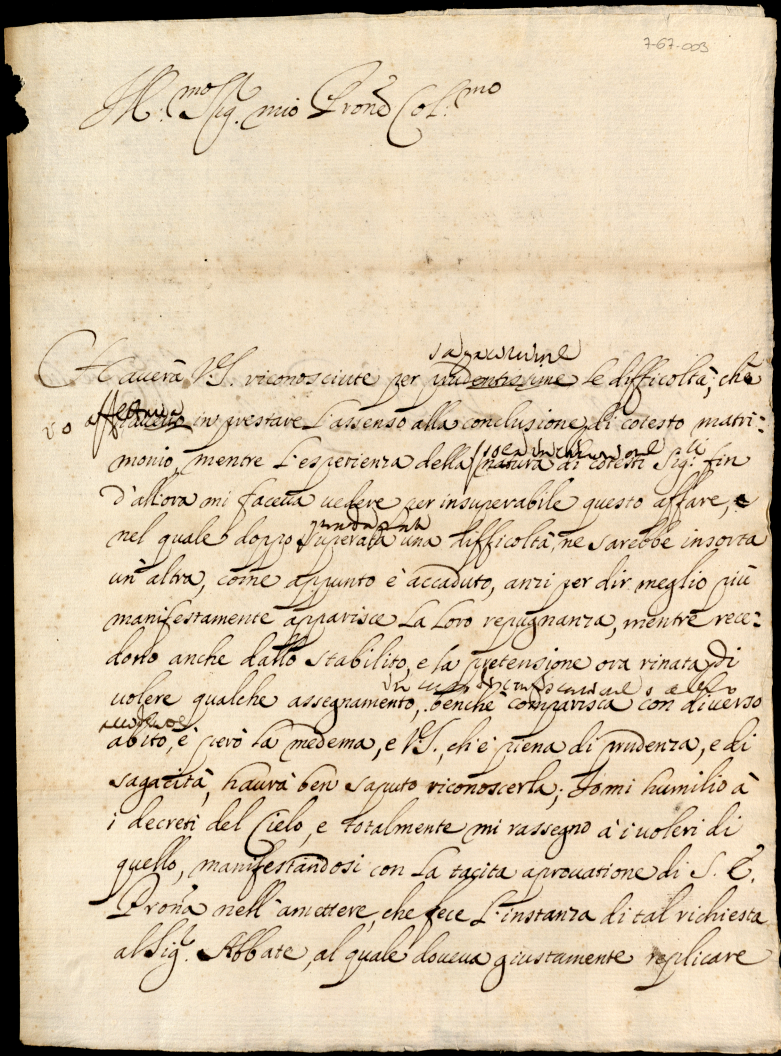 7-67-003
Ill.mo Sig.r mio Prone Col.mo
Haverà V.S. riconosciute per prudentissime le difficoltà, che
facevo in prestare l'assenso alla conclusione di cotesto matri:
monio, mentre l'esperienza della natura di cotesti Sig.ri fin
d'allora mi faceva vedere per insuperabile questo affare, e
nel quale doppo superata una difficoltà, ne sarebbe insorta
un'altra, come appunto è accaduto, anzi per dir meglio più
manifestamente apparisce la loro repugnanza, mentre rece:
dono anche dallo stabilito, e la pretensione ora rinata di
volere qualche assegnamento, benche comparisca con diverso
abito, è però la medema, e V.S., ch'è piena di prudenza, e di
sagacità, haurà ben saputo riconoscerla; Io mi humilio à
i decreti del Cielo, e totalmente mi rassegno à i voleri di
quello, manifestandosi con la tacita aprovatione di S. E.
Prona nell'amettere, che fece l'instanza di tal richiesta
al Sig.r Abbate, al quale doveva giustamente replicare